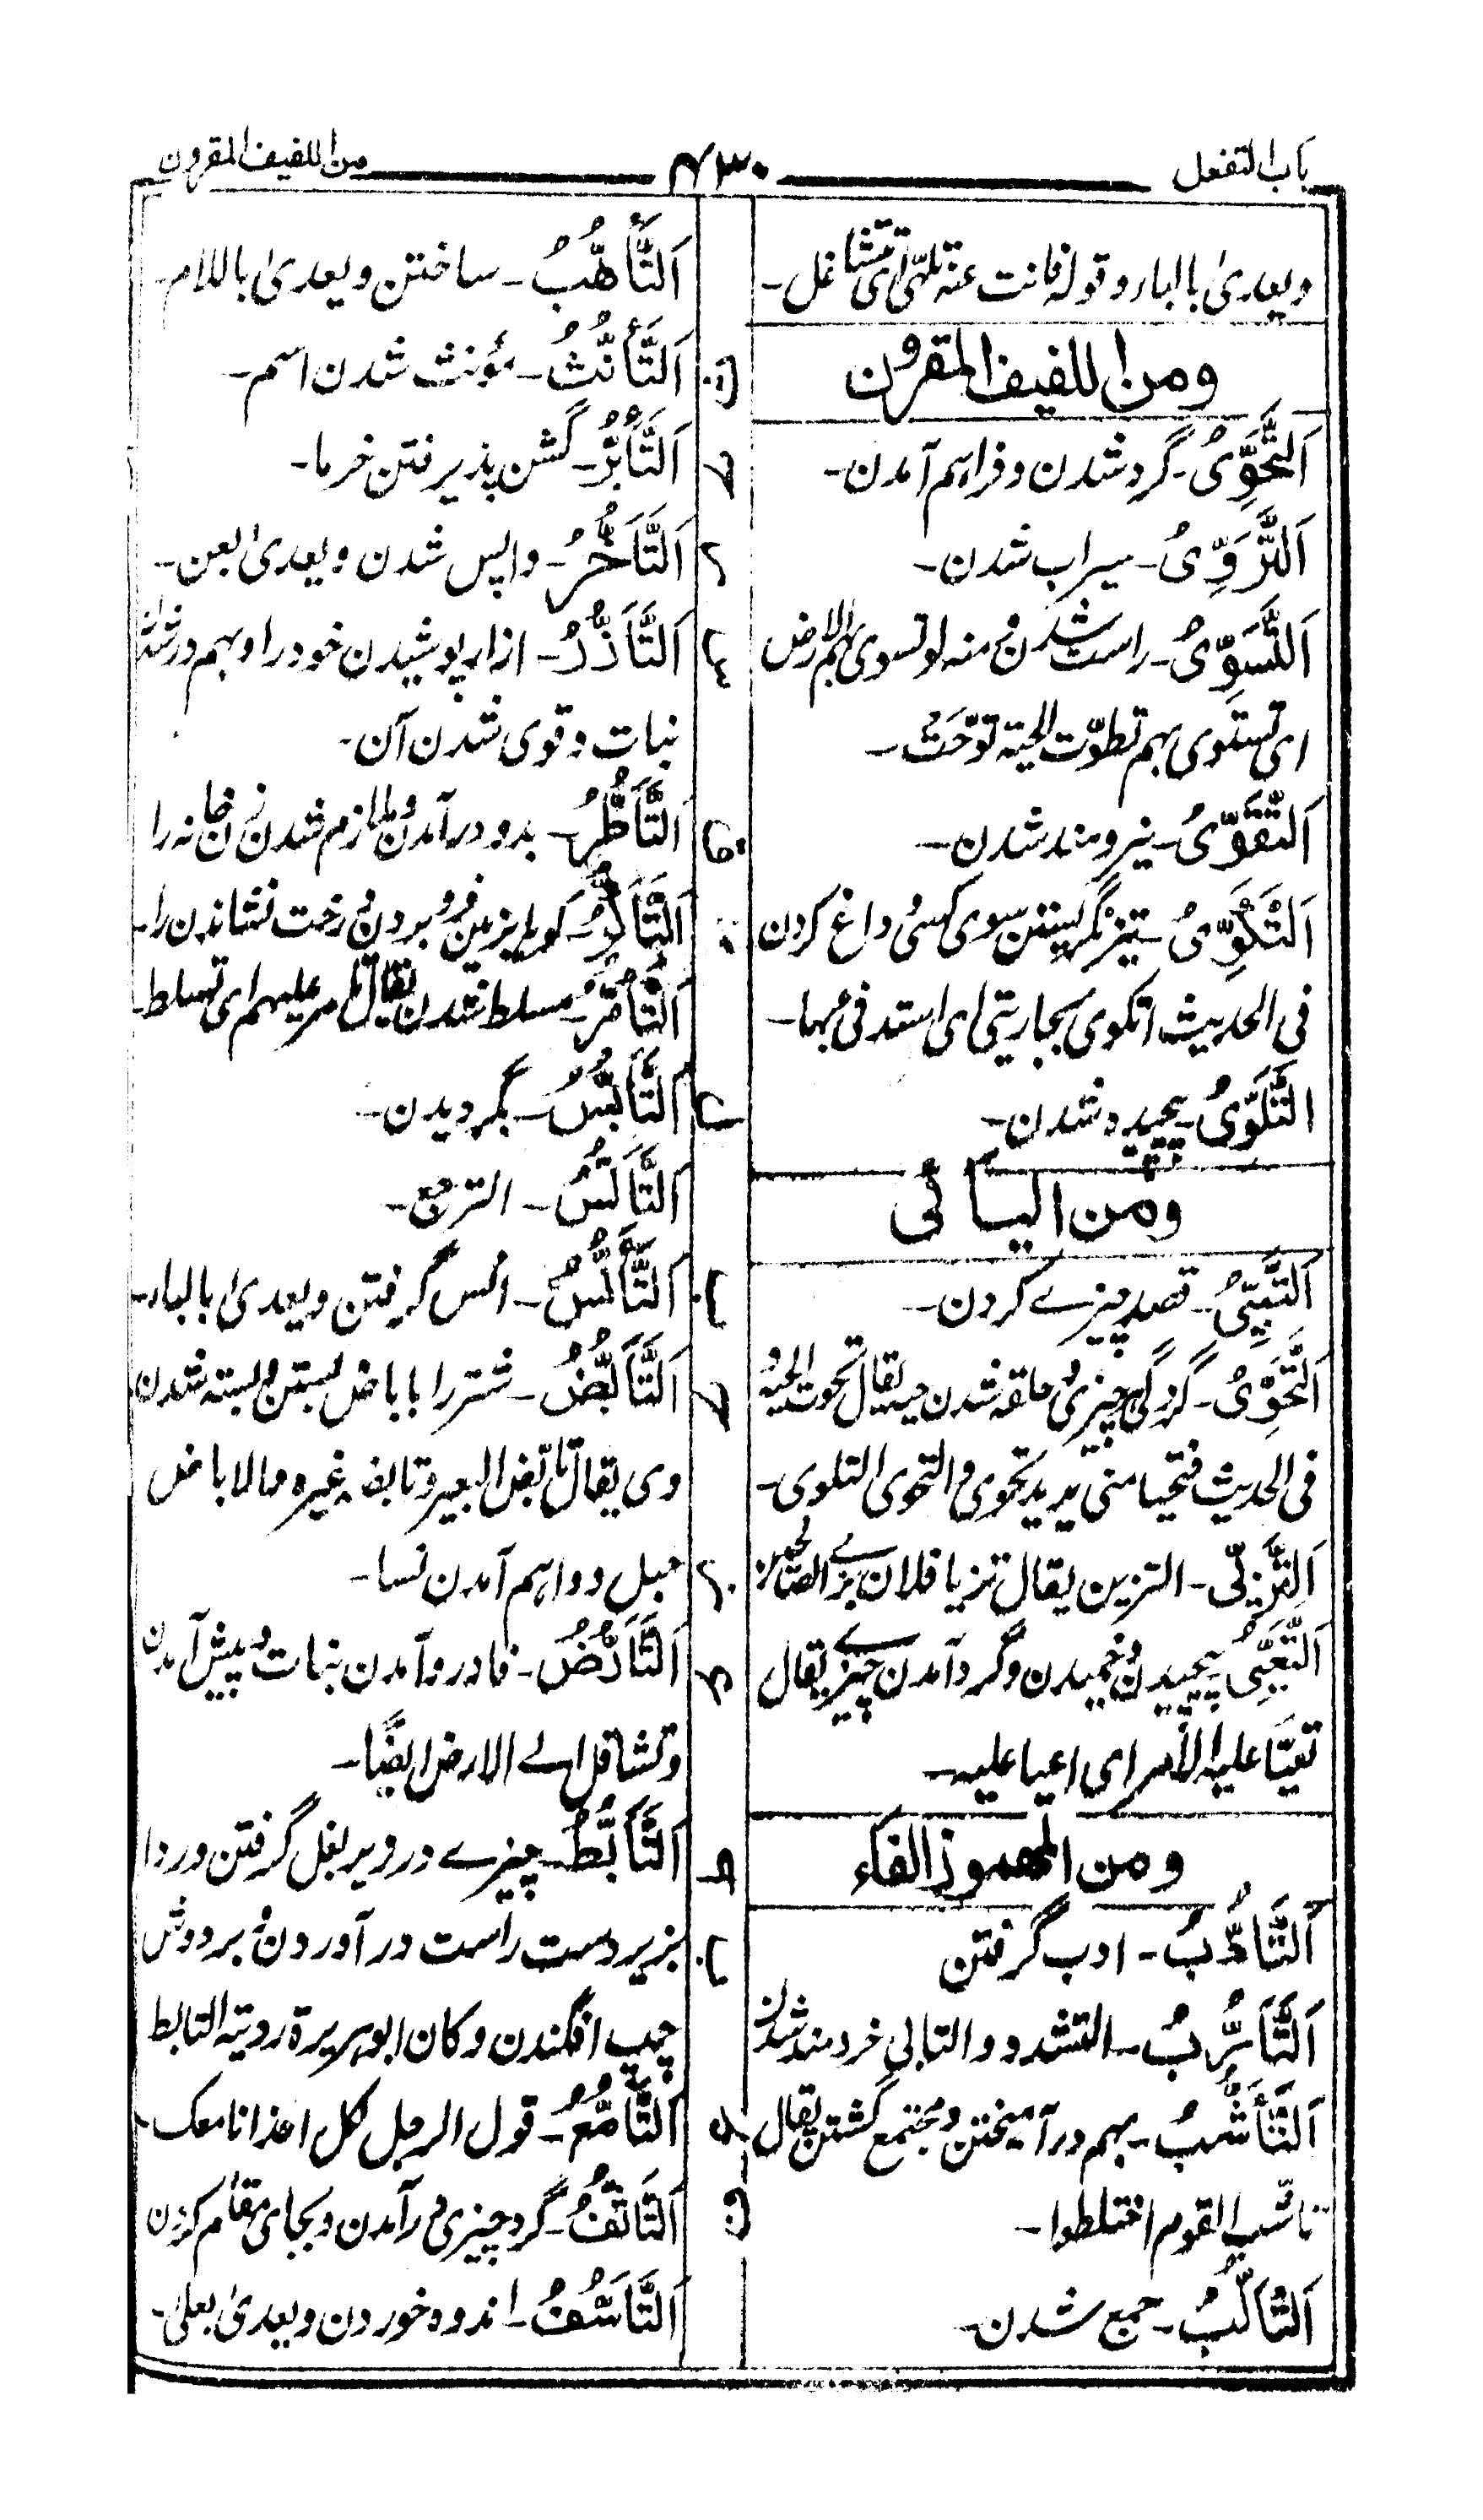 باب التفعل
۷۳۰
من اللفيف المقرون
ويعدىٰ بالباء وقوله فانت عنه تلهّى اى تتشاغل۔
ومن اللفيف المقرون
اَلتَّحَوِّىُ۔ گرد شدن و فراہم آمدن۔
اَلتَّرَوِّىُ۔ سیراب شدن۔
اَلتَّسَوِّىُ۔ راست شدن و منہ لو تسوى بہم الارض
اى تستوى بہم تطوّت الحیۃ توحّت۔
اَلتَّقَوِّىُ۔ نیرومند شدن۔
اَلتَّكَوِّىُ۔ تیز نگریستن سوى كسى و داغ كردن
فى الحدیث اتكوى بجاریتى اى استدفئ بہا۔
اَلتَّلَوِّىُ۔ پیچیدہ شدن۔
ومن اليائى
اَلتَّبَيِّىُ۔ قصد چیزے كردن۔
اَلتَّحَوِّىُ۔ گرد گى چیزى و حلقہ شدن حیہ یقال تحوت الحیۃ و
فى الحدیث فتحیا منى یرید تحوى و التحوى التلوى۔
اَلتَّزَيِّى۔ التزین یقال تزیا فلان بزے الصالحین
اَلتَّعَيِّىُ۔ پیچیدن و خمیدن و گرد آمدن چیزے یقال
تعیّا علیہ الأمر اى اعیا علیہ۔
ومن المهموز الفاء
اَلتَّأَدُّبُ۔ ادب گرفتن
اَلتَّأَرُّبُ۔ التشدد و التابى خردمند شدن
اَلتَّأَشُّبُ۔ بہم در آمیختن و مجتمع گشتن یقال
تاشّب القوم اختلطوا۔
اَلتَّأَلُّبُ۔ جمع شدن۔
اَلتَّأَهُّبُ۔ ساختن و یعدىٰ باللام۔
اَلتَّأَنُّثُ۔ مؤنث شدن اسم۔
اَلتَّأَبُّرُ۔ گشن پذیرفتن خرما۔
اَلتَّأَخُّرُ۔ واپس شدن و یعدىٰ بعن۔
اَلتَّأَزُّرُ۔ ازار پوشیدن خود را و بہم در شدن
نبات و قوى شدن آن۔
اَلتَّأَطُّرُ۔ بدو در آمدن و ملازم شدن زن خانہ را
اَلتَّأَكُّرُ۔ گو بر زمین فرو بردن درخت نشاندن را۔
اَلتَّأَمُّرُ۔ مسلط شدن یقال تامر علیہم اى تسلط۔
اَلتَّأَبُّسُ۔ بگردیدن۔
اَلتَّأَسُّنُ۔ الترجع۔
اَلتَّأَنُّسُ۔ انس گرفتن و یعدىٰ بالباء۔
اَلتَّأَبُّضُ۔ شتر را باباض بستن و بستہ شدن
وى یقال تابّض البعیر و تابضہ غیرہ و الاباض
حبل و واہم آمدن نسا۔
اَلتَّأَرُّضُ۔ فا در و آمدن نبات و پیش آمدن
و تثاقل الے الارض ایضًا۔
اَلتَّأَبُّطُ۔ چیزے در و یر بغل گرفتن و ردا
بزیر دست راست در آوردن و بر دوش
چپ افگندن و كان ابوہریرۃ ردیتہ التابط
اَلتَّأَمُّعُ۔ قول الرجل لكل احد انا معك۔
اَلتَّأَثُّفُ۔ گرد چیزى در آمدن و بجاى مقام كردن
اَلتَّأَسُّفُ۔ اندوہ خوردن و یعدىٰ بعلىٰ۔